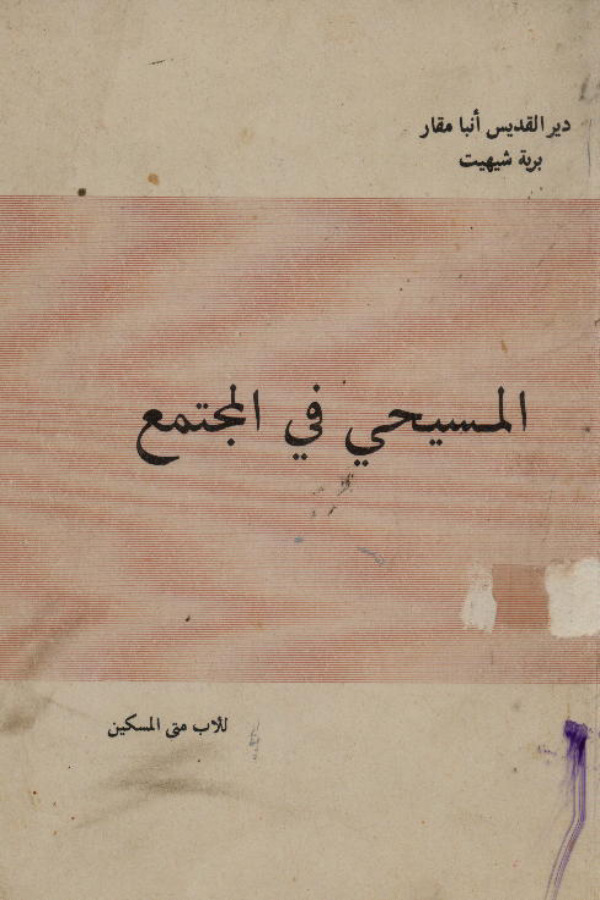 دير القديس أنبا مقار
برية شيهيت
المسيحي في المجتمع
للأب متى المسكين